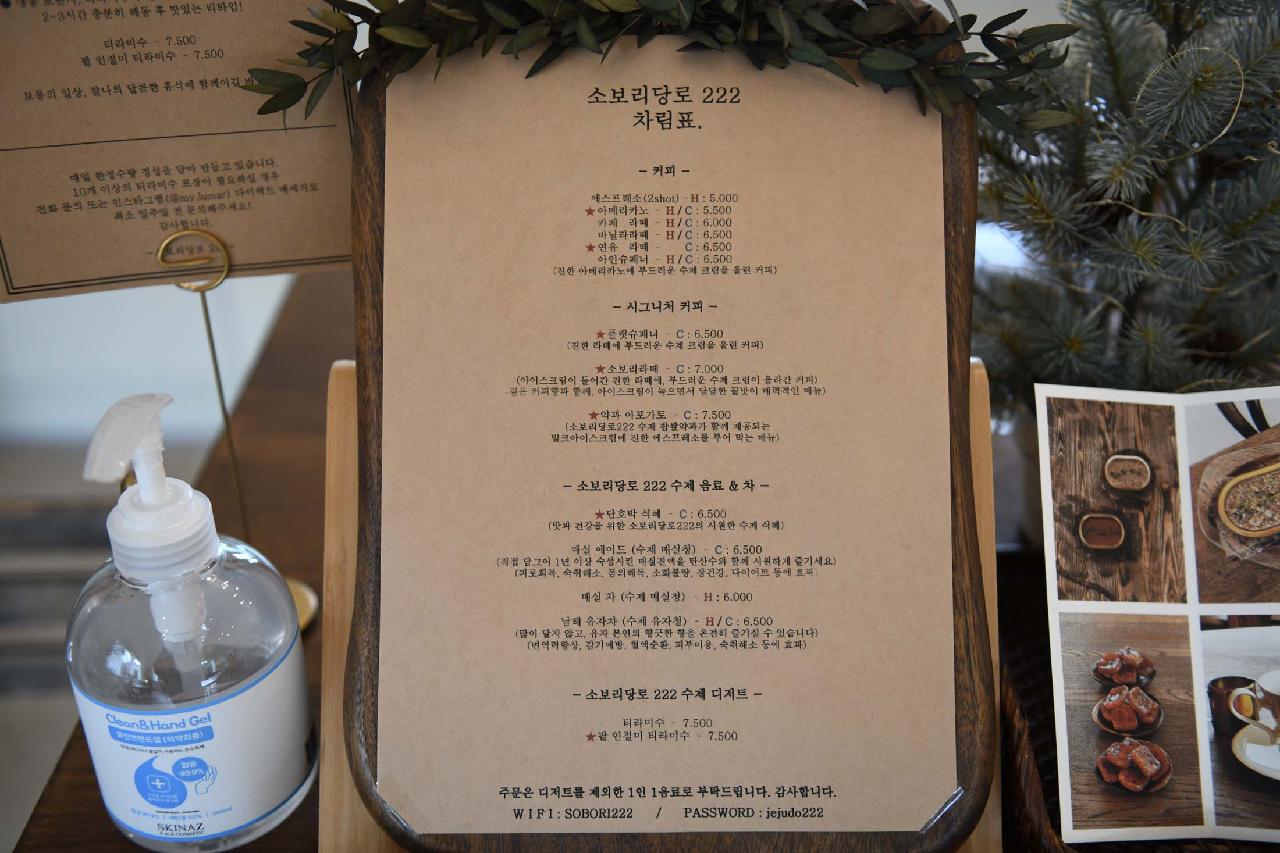 2-3시간 충분히 해동 후 맛있는 티타임!
티라미수 - 7.500
팥 인절미 티라미수 - 7.500
보통의 일상, 찰나의 달콤한 휴식에 함께이길
매일 한정수량 정성을 담아 만들고 있습니다.
10개 이상의 티라미수 포장이 필요하실 경우
전화 문의 또는 인스타그램(@my.lumar) 다이렉트 메세지로
최소 일주일 전 문의해주세요!
감사합니다.
소보리당로 222
차림표.
- 커피 -
에스프레소(2shot) - H : 5.000
★아메리카노 - H / C : 5.500
카페 라떼 - H / C : 6.000
바닐라라떼 - H / C : 6.500
★연유 라떼 - C : 6.500
아인슈페너 - H / C : 6.500
(진한 아메리카노에 부드러운 수제 크림을 올린 커피)
- 시그니처 커피 -
★플랫슈페너 - C : 6.500
(진한 라떼에 부드러운 수제 크림을 올린 커피)
★소보리라떼 - C : 7.000
(아이스크림이 들어간 진한 라떼에, 부드러운 수제 크림이 올라간 커피)
커피향과 함께, 아이스크림이 녹으면서 달달한 끝맛이 매력적인 메뉴)
★약과 아포가토 - C : 7.500
(소보리당로222 수제 찹쌀약과가 함께 제공되는
밀크아이스크림에 진한 에스프레소를 부어 먹는 메뉴)
- 소보리당로 222 수제 음료 & 차 -
★단호박 식혜 - C : 6.500
(맛과 건강을 위한 소보리당로222의 시원한 수제 식혜)
매실 에이드 (수제 매실청) - C : 6.500
(직접 담그어 1년 이상 숙성시킨 매실진액을 탄산수와 함께 시원하게 즐기세요)
(피로회복, 숙취해소, 몸의해독, 소화불량, 장건강, 다이어트 등에 효과)
매실 차 (수제 매실청) - H : 6.000
남해 유자차 (수제 유자청) - H / C : 6.500
(많이 달지 않고, 유자 본연의 향긋한 향을 온전히 즐기실 수 있습니다)
(면역력향상, 감기예방, 혈액순환, 피부미용, 숙취해소 등에 효과)
- 소보리당로 222 수제 디저트 -
티라미수 - 7.500
★팥 인절미 티라미수 - 7.500
주문은 디저트를 제외한 1인 1음료로 부탁드립니다. 감사합니다.
WIFI : SOBORI222 / PASSWORD : jejudo222
Clean&Hand Gel
클린앤핸드겔 (의약외품)
살균
99.9%
SKINAZ
A to Z COSMETIC